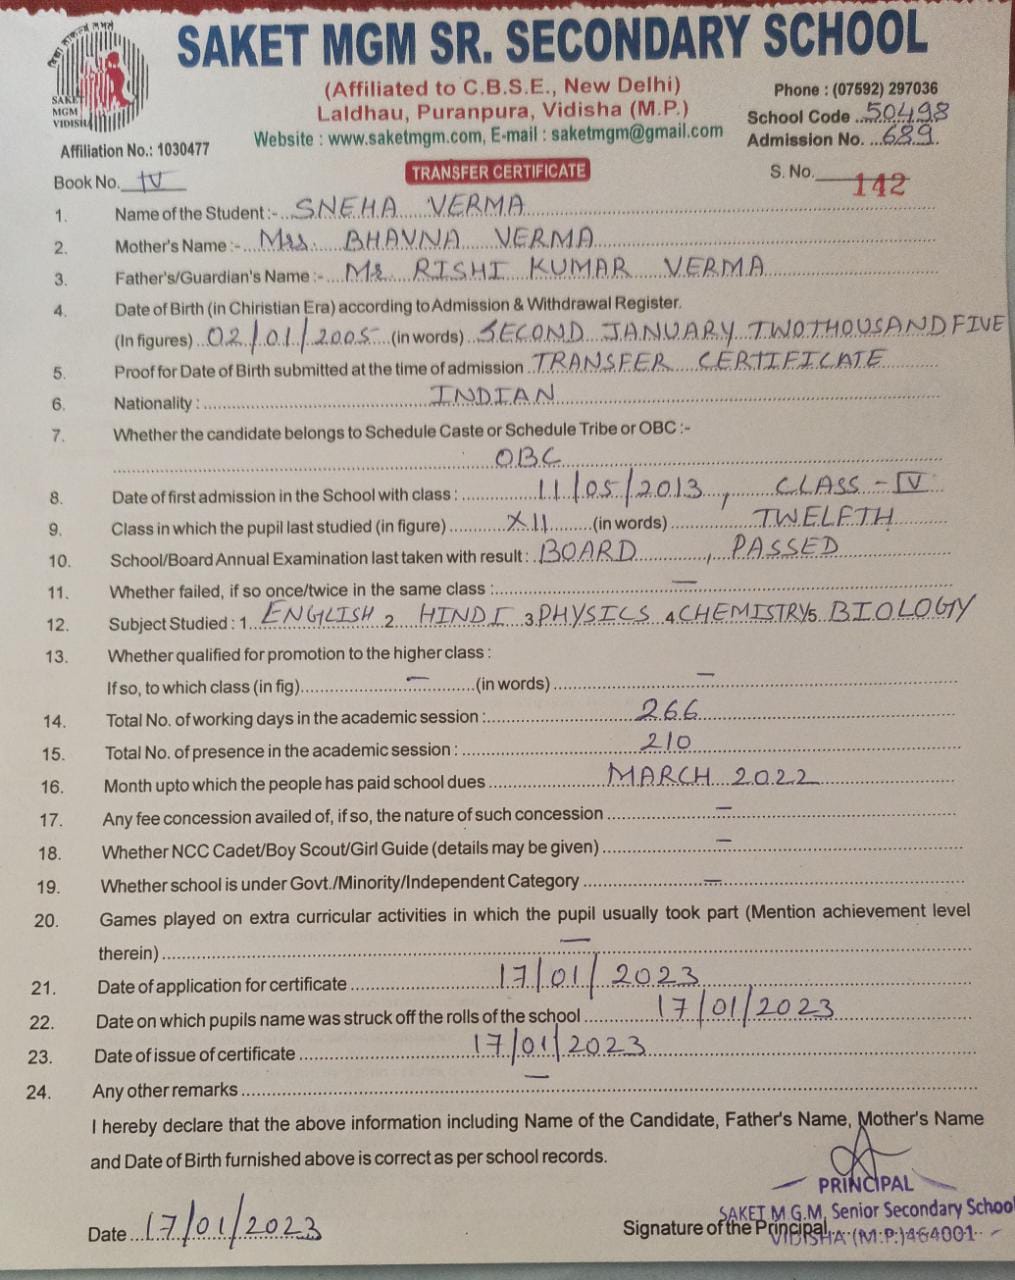 SAKET MGM SR. SECONDARY SCHOOL
(Affiliated to C.B.S.E., New Delhi)
Laldhau, Puranpura, Vidisha (M.P.)
Website : www.saketmgm.com, E-mail : saketmgm@gmail.com
SAKET
MGM
VIDISHA
Affiliation No.: 1030477
Phone : (07592) 297036
School Code ..50498
Admission No. ...689.
Book No. IV
TRANSFER CERTIFICATE
S. No. 142
1. Name of the Student :- SNEHA VERMA
2. Mother's Name :- Mrs. BHAVNA VERMA
3. Father's/Guardian's Name :- Mr RISHI KUMAR VERMA
4. Date of Birth (in Chiristian Era) according to Admission & Withdrawal Register.
(In figures) 02/01/2005 (in words) SECOND JANUARY TWOTHOUSANDFIVE
5. Proof for Date of Birth submitted at the time of admission TRANSFER CERTIFICATE
6. Nationality : INDIAN
7. Whether the candidate belongs to Schedule Caste or Schedule Tribe or OBC :-
OBC
8. Date of first admission in the School with class : 11/05/2013, CLASS - IV
9. Class in which the pupil last studied (in figure) XII (in words) TWELFTH
10. School/Board Annual Examination last taken with result : BOARD, PASSED
11. Whether failed, if so once/twice in the same class : —
12. Subject Studied : 1. ENGLISH 2. HINDI 3. PHYSICS 4. CHEMISTRY 5. BIOLOGY
13. Whether qualified for promotion to the higher class :
If so, to which class (in fig) — (in words) —
14. Total No. of working days in the academic session : 266
15. Total No. of presence in the academic session : 210
16. Month upto which the people has paid school dues MARCH 2022
17. Any fee concession availed of, if so, the nature of such concession —
18. Whether NCC Cadet/Boy Scout/Girl Guide (details may be given) —
19. Whether school is under Govt./Minority/Independent Category —
20. Games played on extra curricular activities in which the pupil usually took part (Mention achievement level
therein) —
21. Date of application for certificate 17/01/2023
22. Date on which pupils name was struck off the rolls of the school 17/01/2023
23. Date of issue of certificate 17/01/2023
24. Any other remarks —
I hereby declare that the above information including Name of the Candidate, Father's Name, Mother's Name
and Date of Birth furnished above is correct as per school records.
PRINCIPAL
SAKET M.G.M. Senior Secondary School
VIDISHA (M.P.) 464001
Date 17/01/2023
Signature of the Principal